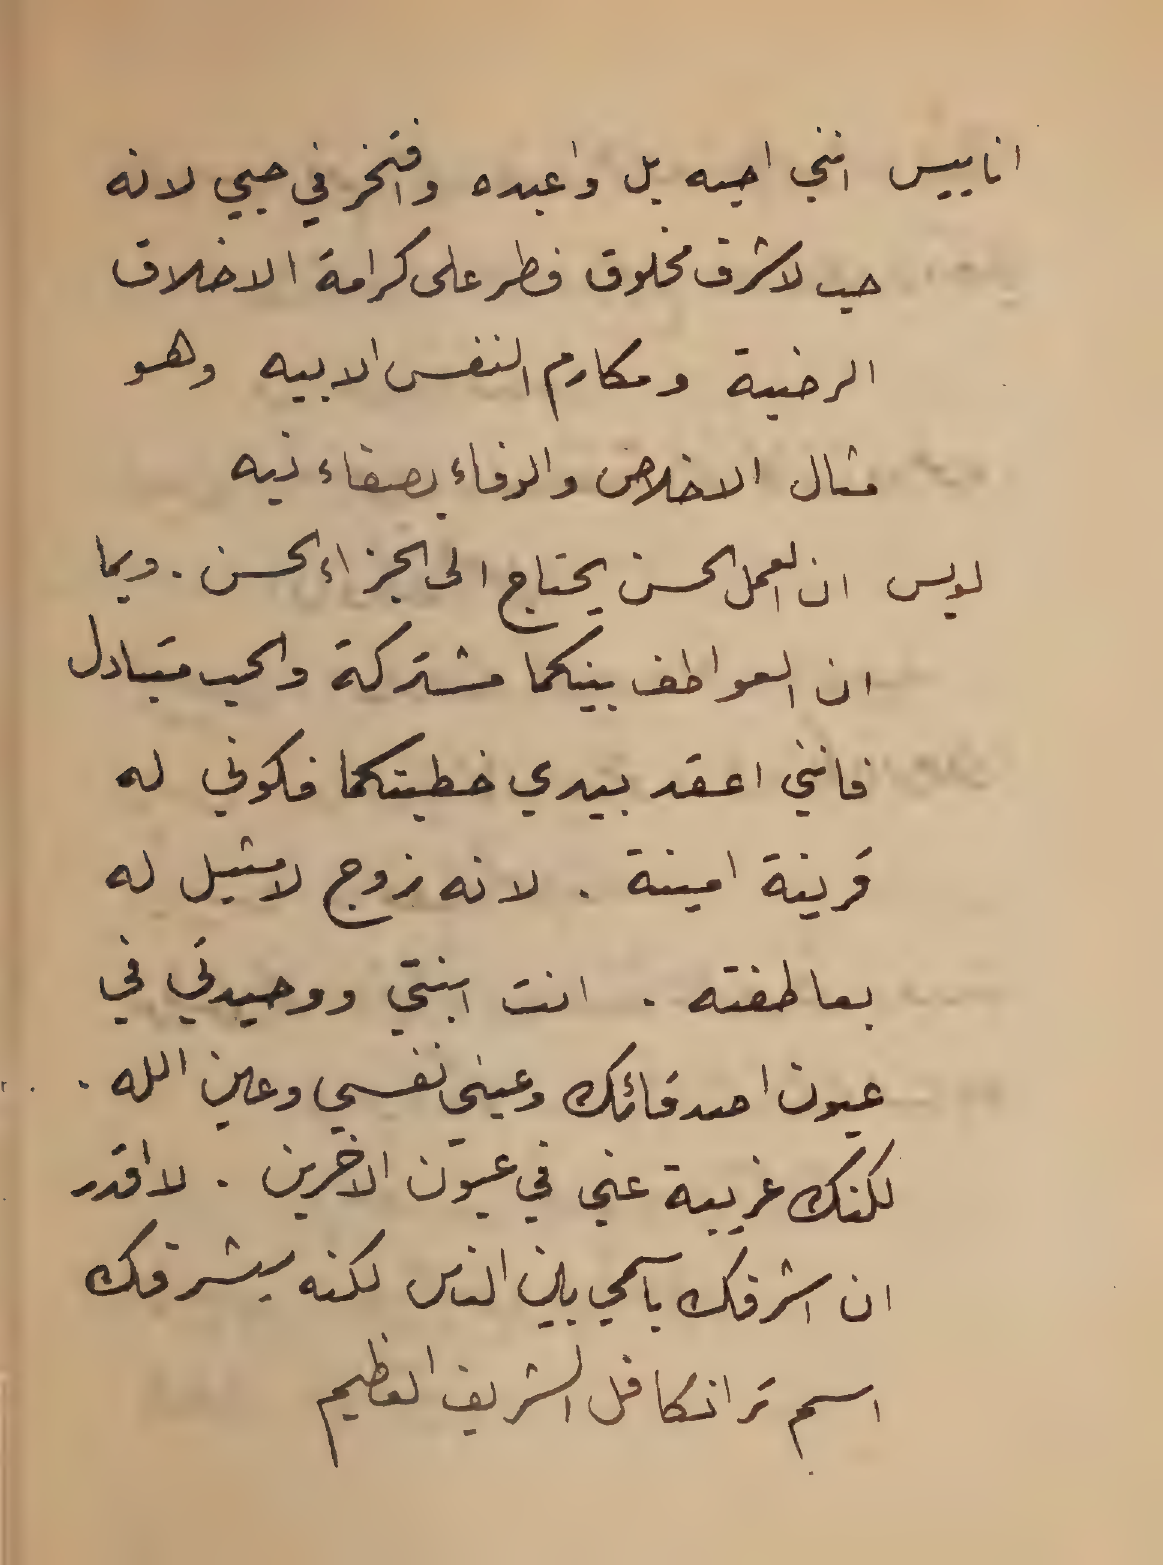 اناييس انني احبه بل واعبده وافتخر في حبي لانه
حب لاشرف مخلوق فطر على كرامة الاخلاق
الرضية ومكارم النفس الابيه وهو
مثال الاخلاص والوفاء بصفاء نيه
لويس ان العمل الحسن يحتاج الى الجزاء الحسن . وبما
ان العواطف بينكما مشتركة والحب متبادل
فانني اعقد بيدي خطبتكما فكوني له
قرينة امينة . لانه زوج لا مثيل له
بعاطفته . انت ابنتي ووحيدتي في
عيون اصدقائك وعيني نفسي وعين الله .
لكنك غريبة عني في عيون الاخرين . لا اقدر
ان اشرفك باسمي بين الناس لكنه سيشرفك
اسم ترانكافل الشريف العظيم